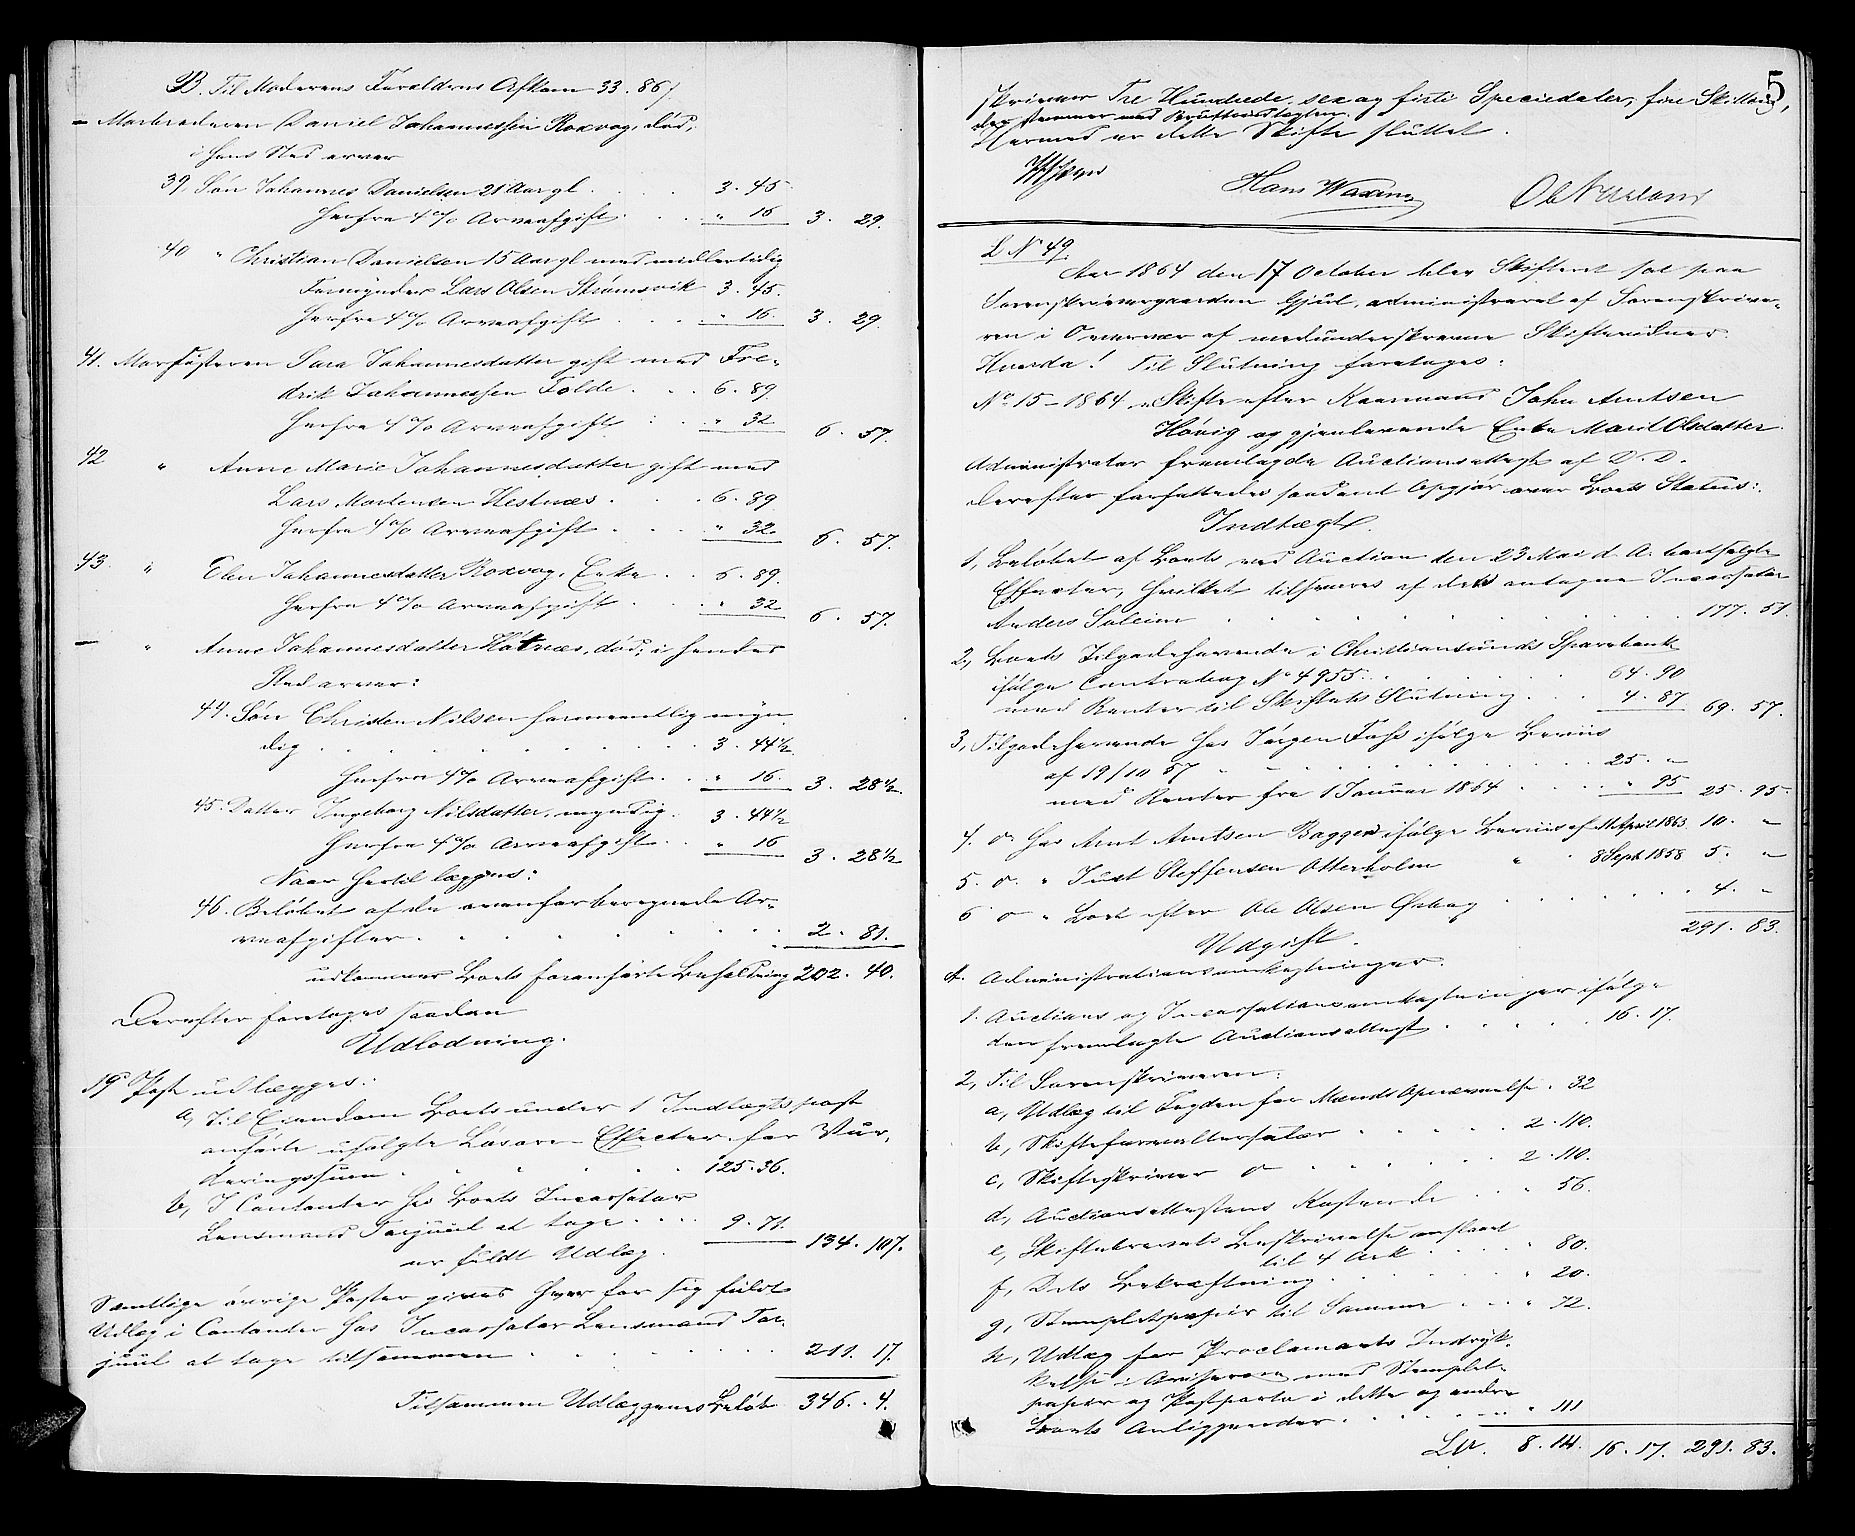 B. Til Moderens Forældres Afkom 33. 86 7
— Morbroderen Daniel Johannessen Roxvog, død,
i hans Sted arver
39, Søn Johannes Danielsen 21 Aar gl. . . . 3. 45.
herfra 4 % Arveafgift . . . " 16 3. 29.
40 " Christian Danielsen 15 Aar gl. med midlertidig
Formynder Lars Olsen Strømsvik 3. 45.
herfra 4 % Arveafgift . . . " 16. 3. 29.
41. Morsøsteren Sara Johannesdatter gift med Fre-
drik Johannessen Folde . . . 6. 89
herfra 4 % Arveafgift . . . " 32 6. 57.
42 " Anne Marie Johannesdatter gift med
Lars Mortensen Hestnæs . . . 6. 89
herfra 4 % Arveafgift . . . " 32. 6. 57.
43. " Elen Johannesdatter Roxvog, Enke . . 6. 89.
herfra 4 % Arveafgift . . . " 32 6. 57.
— " Anne Johannesdatter død, i hendes
Sted arver:
44. Søn Christen Nilsen formeentlig myn-
dig . . . 3. 44½
herfra 4 % Arveafgift . . . " 16. 3. 28½
45. Datter Ingeborg Nilsdatter, myndig . 3. 44½
herfra 4 % Arveafgift . . " 16 3. 28½
Naar hertil lægges:
46. Beløbet af de ovenfor beregnede Ar-
veafgifter . . . 2. 81.
udkommer Boets foranførte Beholdning 202. 40.
Derefter foretoges saadan
Udlodning.
19de Post udlægges:
a, Til Eiendom Boets under 1 Indtægtspost
anførte usolgte Løsøre-Effecter for Vur-
deringssum . . . 125. 36.
b, I Contanter hos Boets Incassator
Lensmand Torjuul at tage . . . 9. 71. 134. 107.
er fuldt Udlæg.
Samtlige øvrige Poster gives hver for sig fuldt
Udlæg i Contanter hos Incassator Lensmand Tor-
juul at tage tilsammen . . . 211. 17.
Tilsammen Udlæggenes Beløb 346. 4.
5
skriver Tre Hundrede, sex og firti Speciedaler, fire Skilling,
der stemmer med Bruttoindtægten.
Hermed er dette Skifte sluttet.
Hans Waxing
L N 49.
Aar 1864 den 17 October blev Skifteret sat paa
Sorenskrivergaarden Gjul, administreret af Sorenskrive-
ren i Overvær af medunderskrevne Skiftevidner.
Hvorda! Til Slutning foretoges:
No 15 - 1864. Skifte efter Kaarmand John Arntsen
Høvig og gjenlevende Enke Marit Olsdatter.
Administrator fremlagde Auctionsattest af D. D.
Derefter forfattedes saadant Opgjør over Boets Status:
Indtægt.
1, Beløbet af Boets ved Auction den 23 Mai d. A. bortsolgte
Effecter, hvilket tilsvares af dets antagne Incassator
Anders Soleim . . . 177. 51.
2, Boets Tilgodehavende i Christiansunds Sparebank
ifølge Contrabog No 4955 . . . 64. 90
med Renter til Skiftets Slutning . . . 4. 87 69. 57.
3, Tilgodehavende hos Jørgen Foss ifølge Beviis
af 19/10 57 . . . 25. "
med Renter fra 1 Januar 1864 . . . " 95 25. 95.
4. do hos Arnt Arntsen Bagge ifølge Beviis af 11 April 1863 10. "
5. do. " Just Steffensen Otterholm " " 8 Sept 1858 5. "
6 do " Boet efter Ole Olsen Øsbog . . . 4. "
291. 83.
Udgift.
A. Administrationsomkostninger
1. Auctions og Incassationsomkostninger ifølge
den fremlagte Auctionsattest . . . 16. 17.
2, Til Sorenskriveren:
a, Udlæg til Fogden for Mænds Opnævnelse . 32
b, Skifteforvaltersalær . . . 2. 110.
c, Skifteskriver do . . . 2. 110.
d, Auctionsattestens Kostende . . . 56.
e, Skiftebrevets Beskrivelse anslaaet
til 4 Ark . . . " 80.
f, Dets Bekræftning . . . " 20.
g, Stempletpapir til Samme . . . " 72.
h, Udlæg for Proclamaets Indryk-
kelse i Aviserne med Stemplet-
papir og Postporto i dette og andre
Boets Anliggender . . . " 111
Lat. 8. 111. 16. 17. 291. 83.